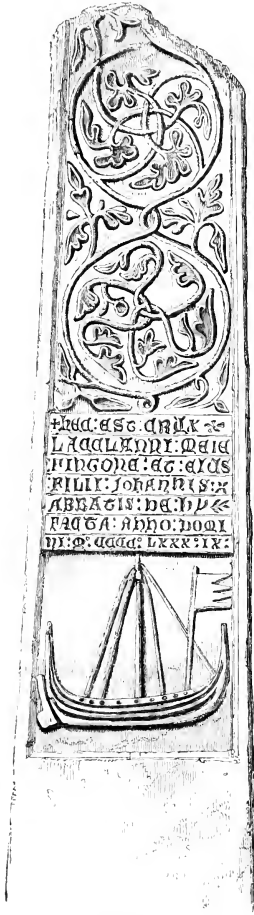 + HEC : EST : CRUX
LACCLANNI : MEIE
FINGONE : ET : EIUS
FILII : JOHANNIS : X
ABBATIS : DE : HY
FACTA : ANNO : DOMI
NI : M : CCCC : LXXX : IX :